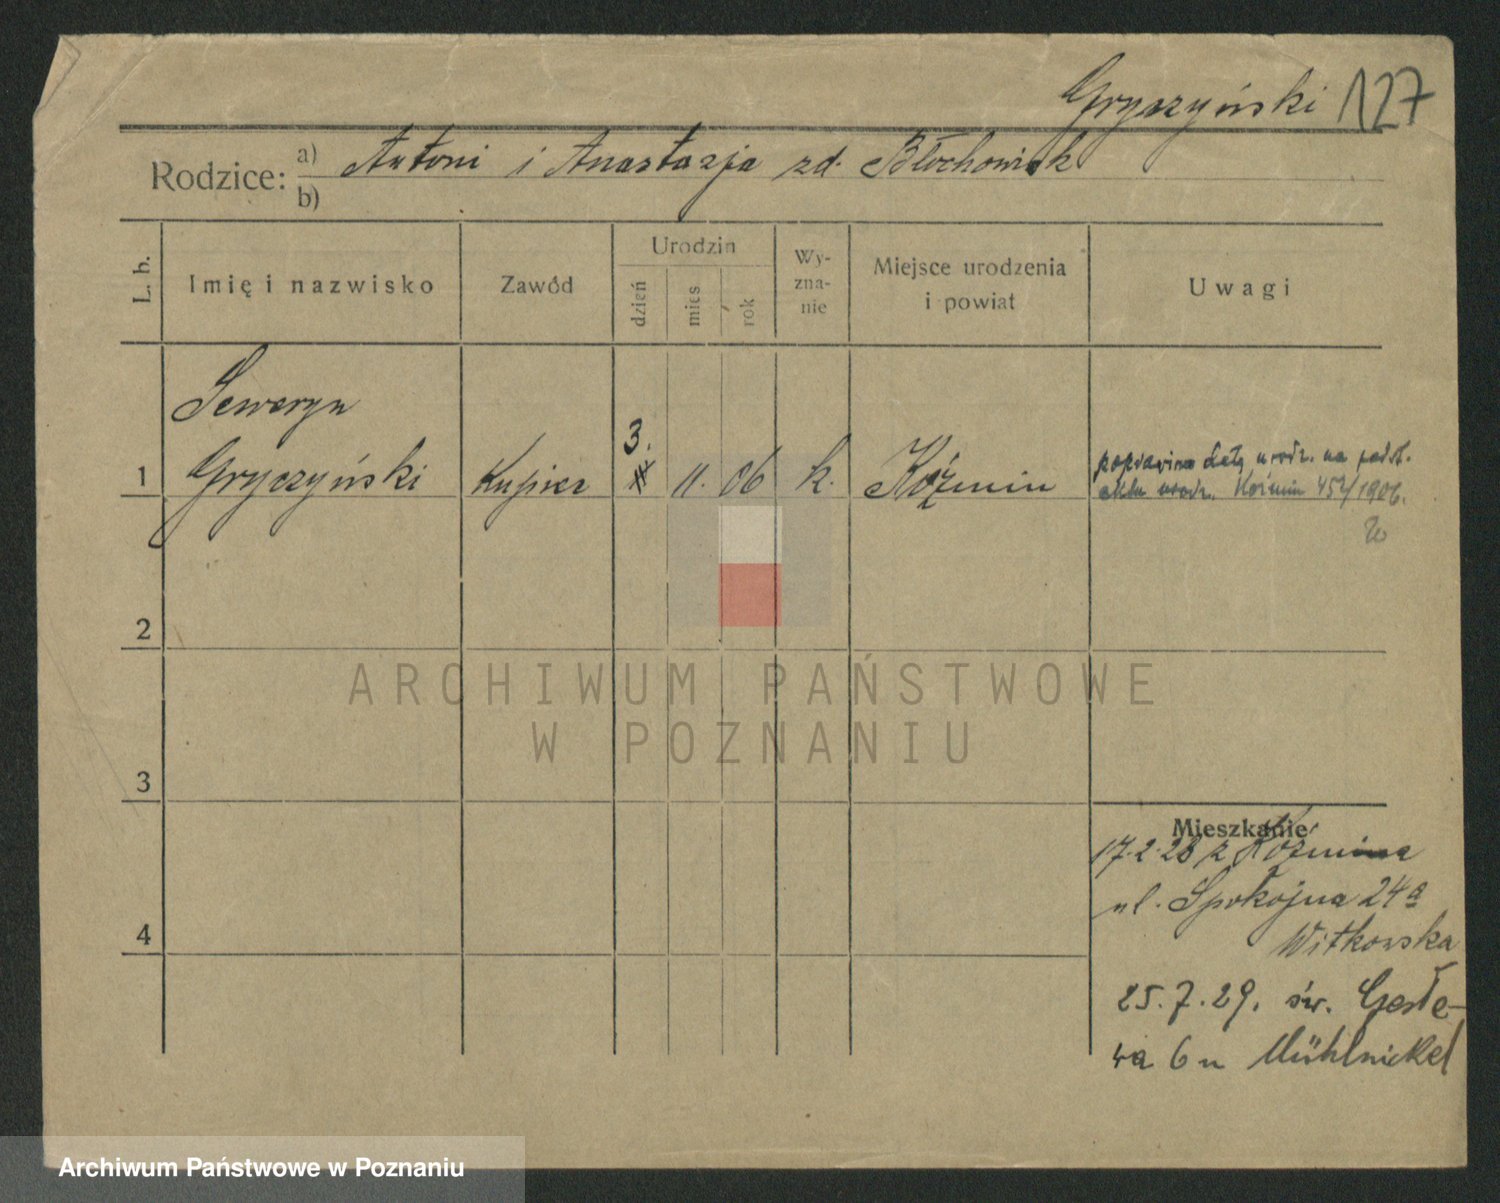 Gryczyński 127
Rodzice: a) Antoni i Anastazja zd. Błochowiak
b)
L. b.
Imię i nazwisko
Zawód
Urodzin
dzień
mies
rok
Wy-
zna-
nie
Miejsce urodzenia
i powiat
Uwagi
Seweryn
1 Gryczyński Kupiec 3. 11. 06 k. Koźmin
poprawiono datę urodz. na podst.
aktu urodz. Koźmin 452/1906.
2
3
4
Mieszkanie
17.2.28 z Koźmina
ul. Spokojna 24a
Witkowska
25.7.29. św.
6 u Mühlnickel
ARCHIWUM PAŃSTWOWE
W POZNANIU
Archiwum Państwowe w Poznaniu